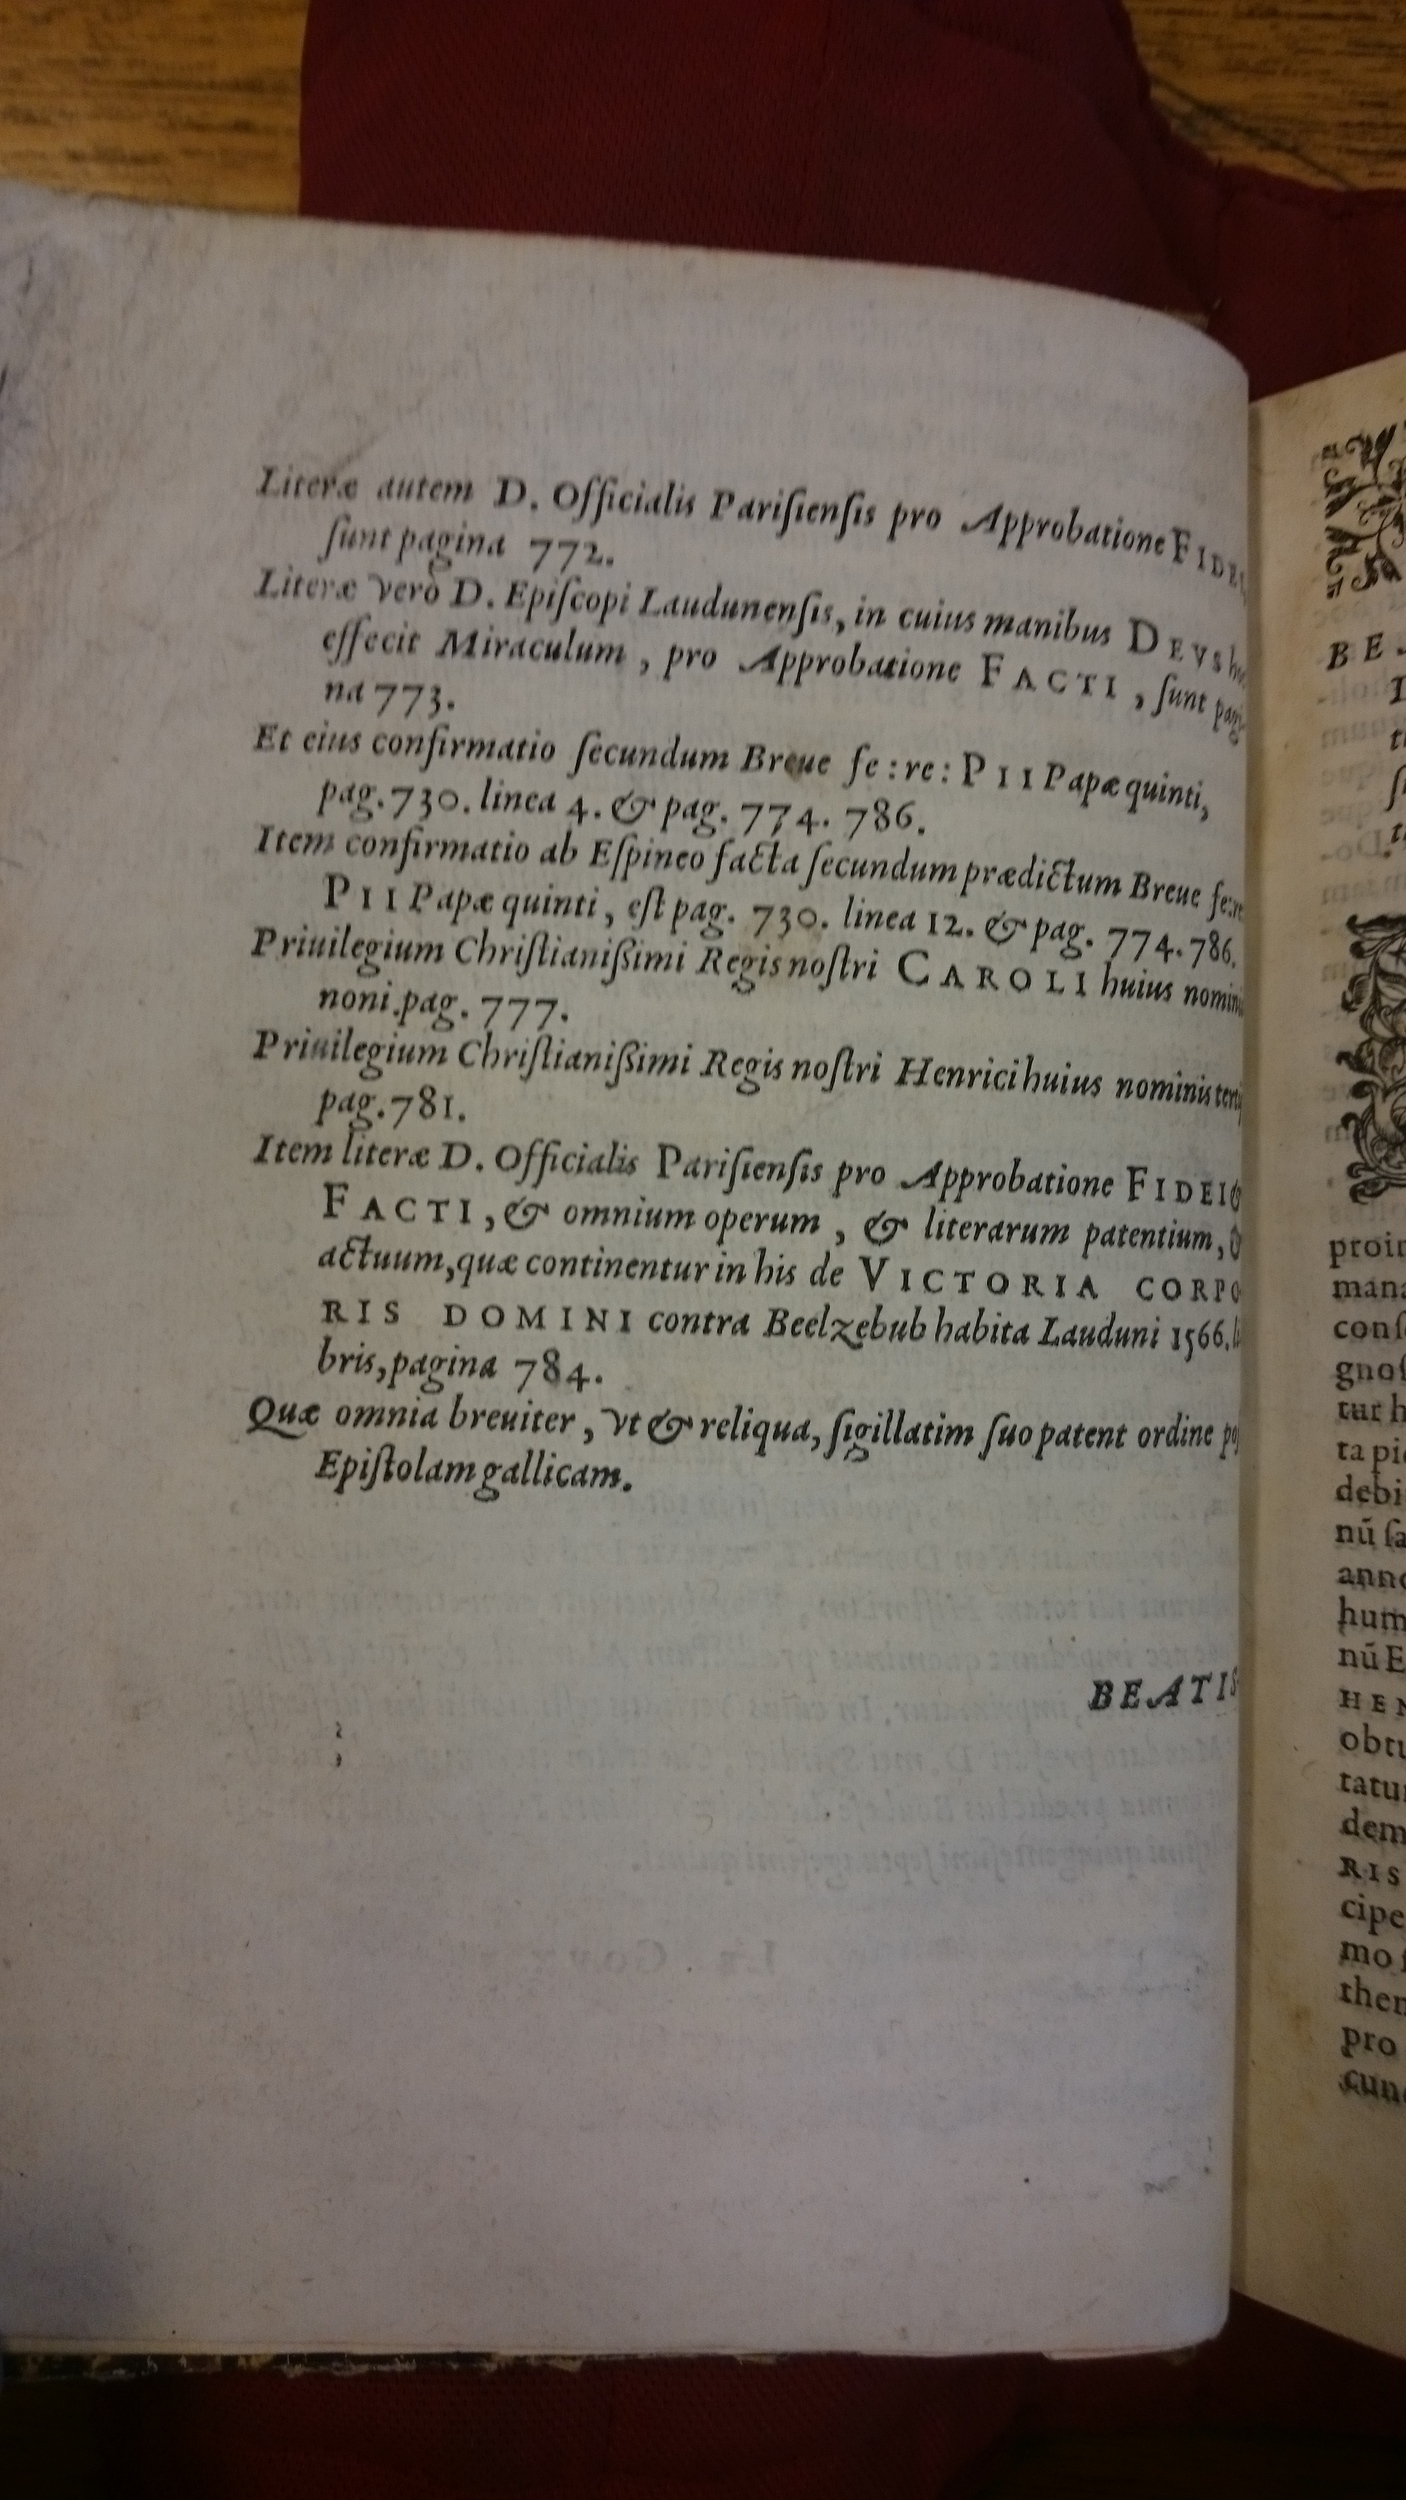 Literæ autem D. Officialis Pariſienſis pro Approbatione FIDEI
ſunt pagina 772.
Literæ verò D. Epiſcopi Laudunenſis, in cuius manibus DEVS
effecit Miraculum, pro Approbatione FACTI, ſunt pagi
na 773.
Et eius confirmatio ſecundum Breue fe:re: PII Papæ quinti,
pag. 730. linea 4. & pag. 774. 786.
Item confirmatio ab Eſpineo facta ſecundum prædictum Breue fe:re
PII Papæ quinti, eſt pag. 730. linea 12. & pag. 774. 786.
Priuilegium Chriſtianiſſimi Regis noſtri CAROLI huius nomini
noni. pag. 777.
Priuilegium Chriſtianiſſimi Regis noſtri Henrici huius nominis
pag. 781.
Item literæ D. Officialis Pariſienſis pro Approbatione FIDEI
FACTI, & omnium operum, & literarum patentium,
actuum, quæ continentur in his de VICTORIA CORPO
RIS DOMINI contra Beelzebub habita Lauduni 1566.
bris, pagina 784.
Quæ omnia breuiter, vt & reliqua, ſigillatim ſuo patent ordine
Epiſtolam gallicam.
BEATIS
BE
proin
mana
conſ
gnoſ
tur h
ta pi
debi
nū ſa
anno
hum
nū E
HEN
obtu
tatu
dem
RIS
cipe
mo
then
pro
cun